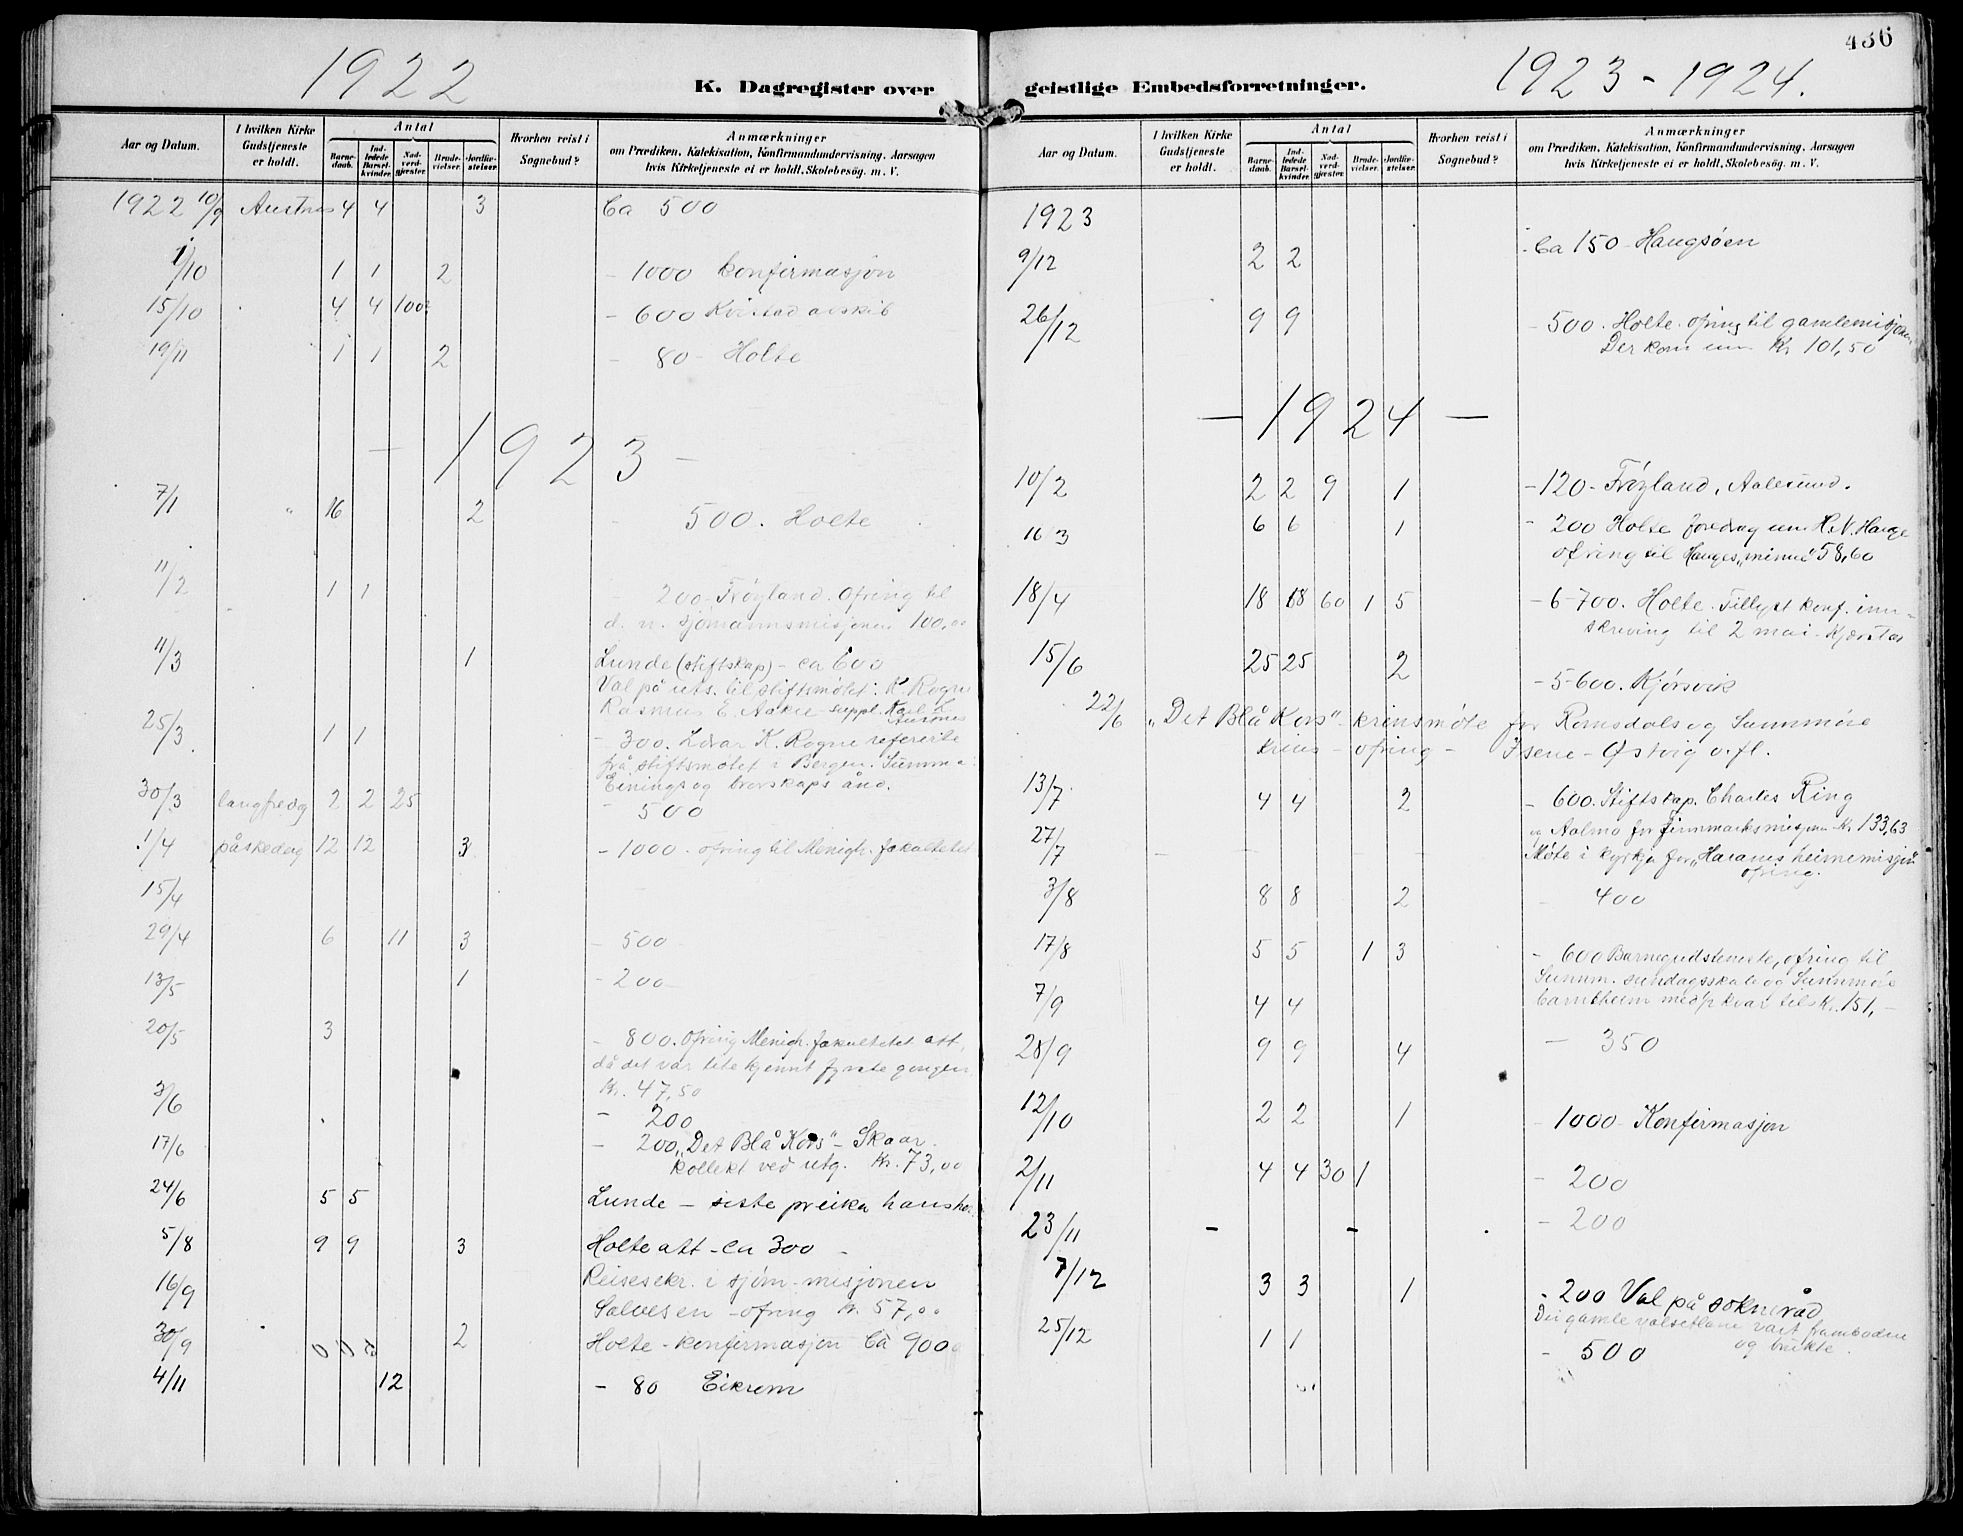 1922
K. Dagregister over
Aar og Datum.
I hvilken Kirke Gudstjeneste er holdt.
Antal
Barnedaab.
Indledede Barselkvinder.
Nadverdgjester.
Brudevielser.
Jordfæstelser.
Hvorhen reist i Sognebud?
Anmærkninger
om Prædiken, Katekisation, Konfirmandundervisning, Aarsagen
hvis Kirketjeneste ei er holdt, Skolebesøg, m. V.
1922 10/9 Austnes 4 4 3 Ca 500
1/10 1 1 2 - 1000 konfirmasjon
15/10 4 4 100 - 600 Kvistad avskil
19/11 1 1 2 - 80 - Holte
- 1923 -
7/1 " 16 2 500. Holte
11/2 1 1 - 200 - Frøyland. Ofring til
d. n. sjømannsmisjonen 100,00
11/3 1 Lunde (stiftskap) - ca 600
Val på uts. til stiftsmøtet: K. Rogne
Rasmus E. suppl. Karl L.
25/3 1 1 - 300. K. Rogne refererte
frå stiftsmøtet i Bergen. Summa:
Einings og brorskaps ånd.
30/3 langfredag 2 2 25 - 500
1/4 påskedag 12 12 3 - 1000 - ofring til Menigh. fakultetet
15/4
29/4 6 11 3 - 500
13/5 1 - 200
20/5 3 - 800. Ofring Menigh. fakultetet att,
då det var lite kjennt fyrste gongen
Kr. 47,50
3/6 - 200
17/6 - 200 „Det Blå Kors" - Skaar.
kollekt ved utg. Kr. 73,00
24/6 5 5 Lunde - siste preika hans her
5/8 9 9 3 Holte att - ca 300 -
16/9 Reisesekr. i sjøm-misjonen
Salvesen - ofring kr. 57,00
30/9 0 0 2 Holte - konfirmasjon Ca 900
4/11 12 - 80 Eikrem
436
geistlige Embedsforretninger.
1923 - 1924.
Aar og Datum.
I hvilken Kirke Gudstjeneste er holdt.
Antal
Barnedaab.
Indledede Barselkvinder.
Nadverdgjester.
Brudevielser.
Jordfæstelser.
Hvorhen reist i Sognebud?
Anmærkninger
om Prædiken, Katekisation, Konfirmandundervisning, Aarsagen
hvis Kirketjeneste ei er holdt, Skolebesøg, m. V.
1923
9/12 2 2 Ca 150 - Haugsøen
26/12 9 9 - 500. Holte. ofring til gamlemisjonen
Der kom inn Kr 101,50
- 1924 -
10/2 2 2 9 1 - 120 - Frøyland, Aalesund.
16 3 6 6 1 - 200 Holte foredrag um H.N. Hauge
ofring til Hauges „minne" 58,60
18/4 18 18 60 1 5 - 6-700. Holte. Tillyst konf. inn-
skriving til 2 mai - Kjærstad
15/6 25 25 2 - 5-600. Kjørsvik
22/6 „Det Blå Kors" - krinsmøte for Romsdals og Sunnmøre
krins - ofring - Isene - Østvig o. fl.
13/7 4 4 2 - 600. Stiftskap. Charles Ring
og Aalmo for finnmarksmisjonen Kr. 133,63
27/7 - - - - - Møte i kyrkja for „Harams heimemisjon"
ofring.
3/8 8 8 2 - 400
17/8 5 5 1 3 - 600 Barnegudsteneste, ofring til
Sunnm. sundagsskole og Sunnmøre
barneheim med kvar tils Kr. 151,-
7/9 4 4
28/9 9 9 4 - 350
12/10 2 2 1 - 1000 - Konfirmasjon
2/11 4 4 30 1 - 200
23/11 - - - 200
7/12 3 3 1 - 200 Val på sokneråd
Dei gamle valsetlane vart frambodne
og brukte.
25/12 1 1 - 500